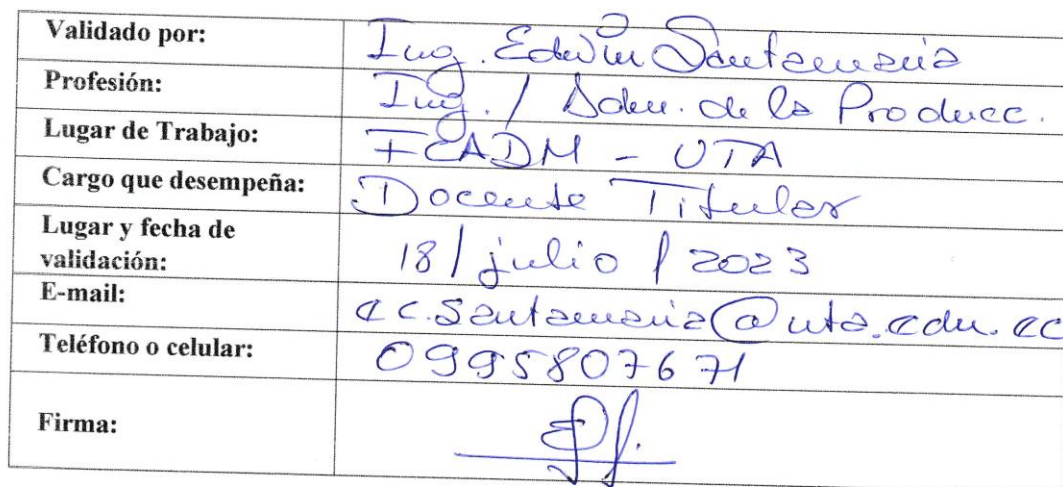 Validado por: Ing. Edwin Santamaría
Profesión: Ing. / Adm. de la Producc.
Lugar de Trabajo: FCADM - UTA
Cargo que desempeña: Docente Titular
Lugar y fecha de
validación: 18 / julio / 2023
E-mail: ec.santamaria@uta.edu.ec
Teléfono o celular: 0995807671
Firma: